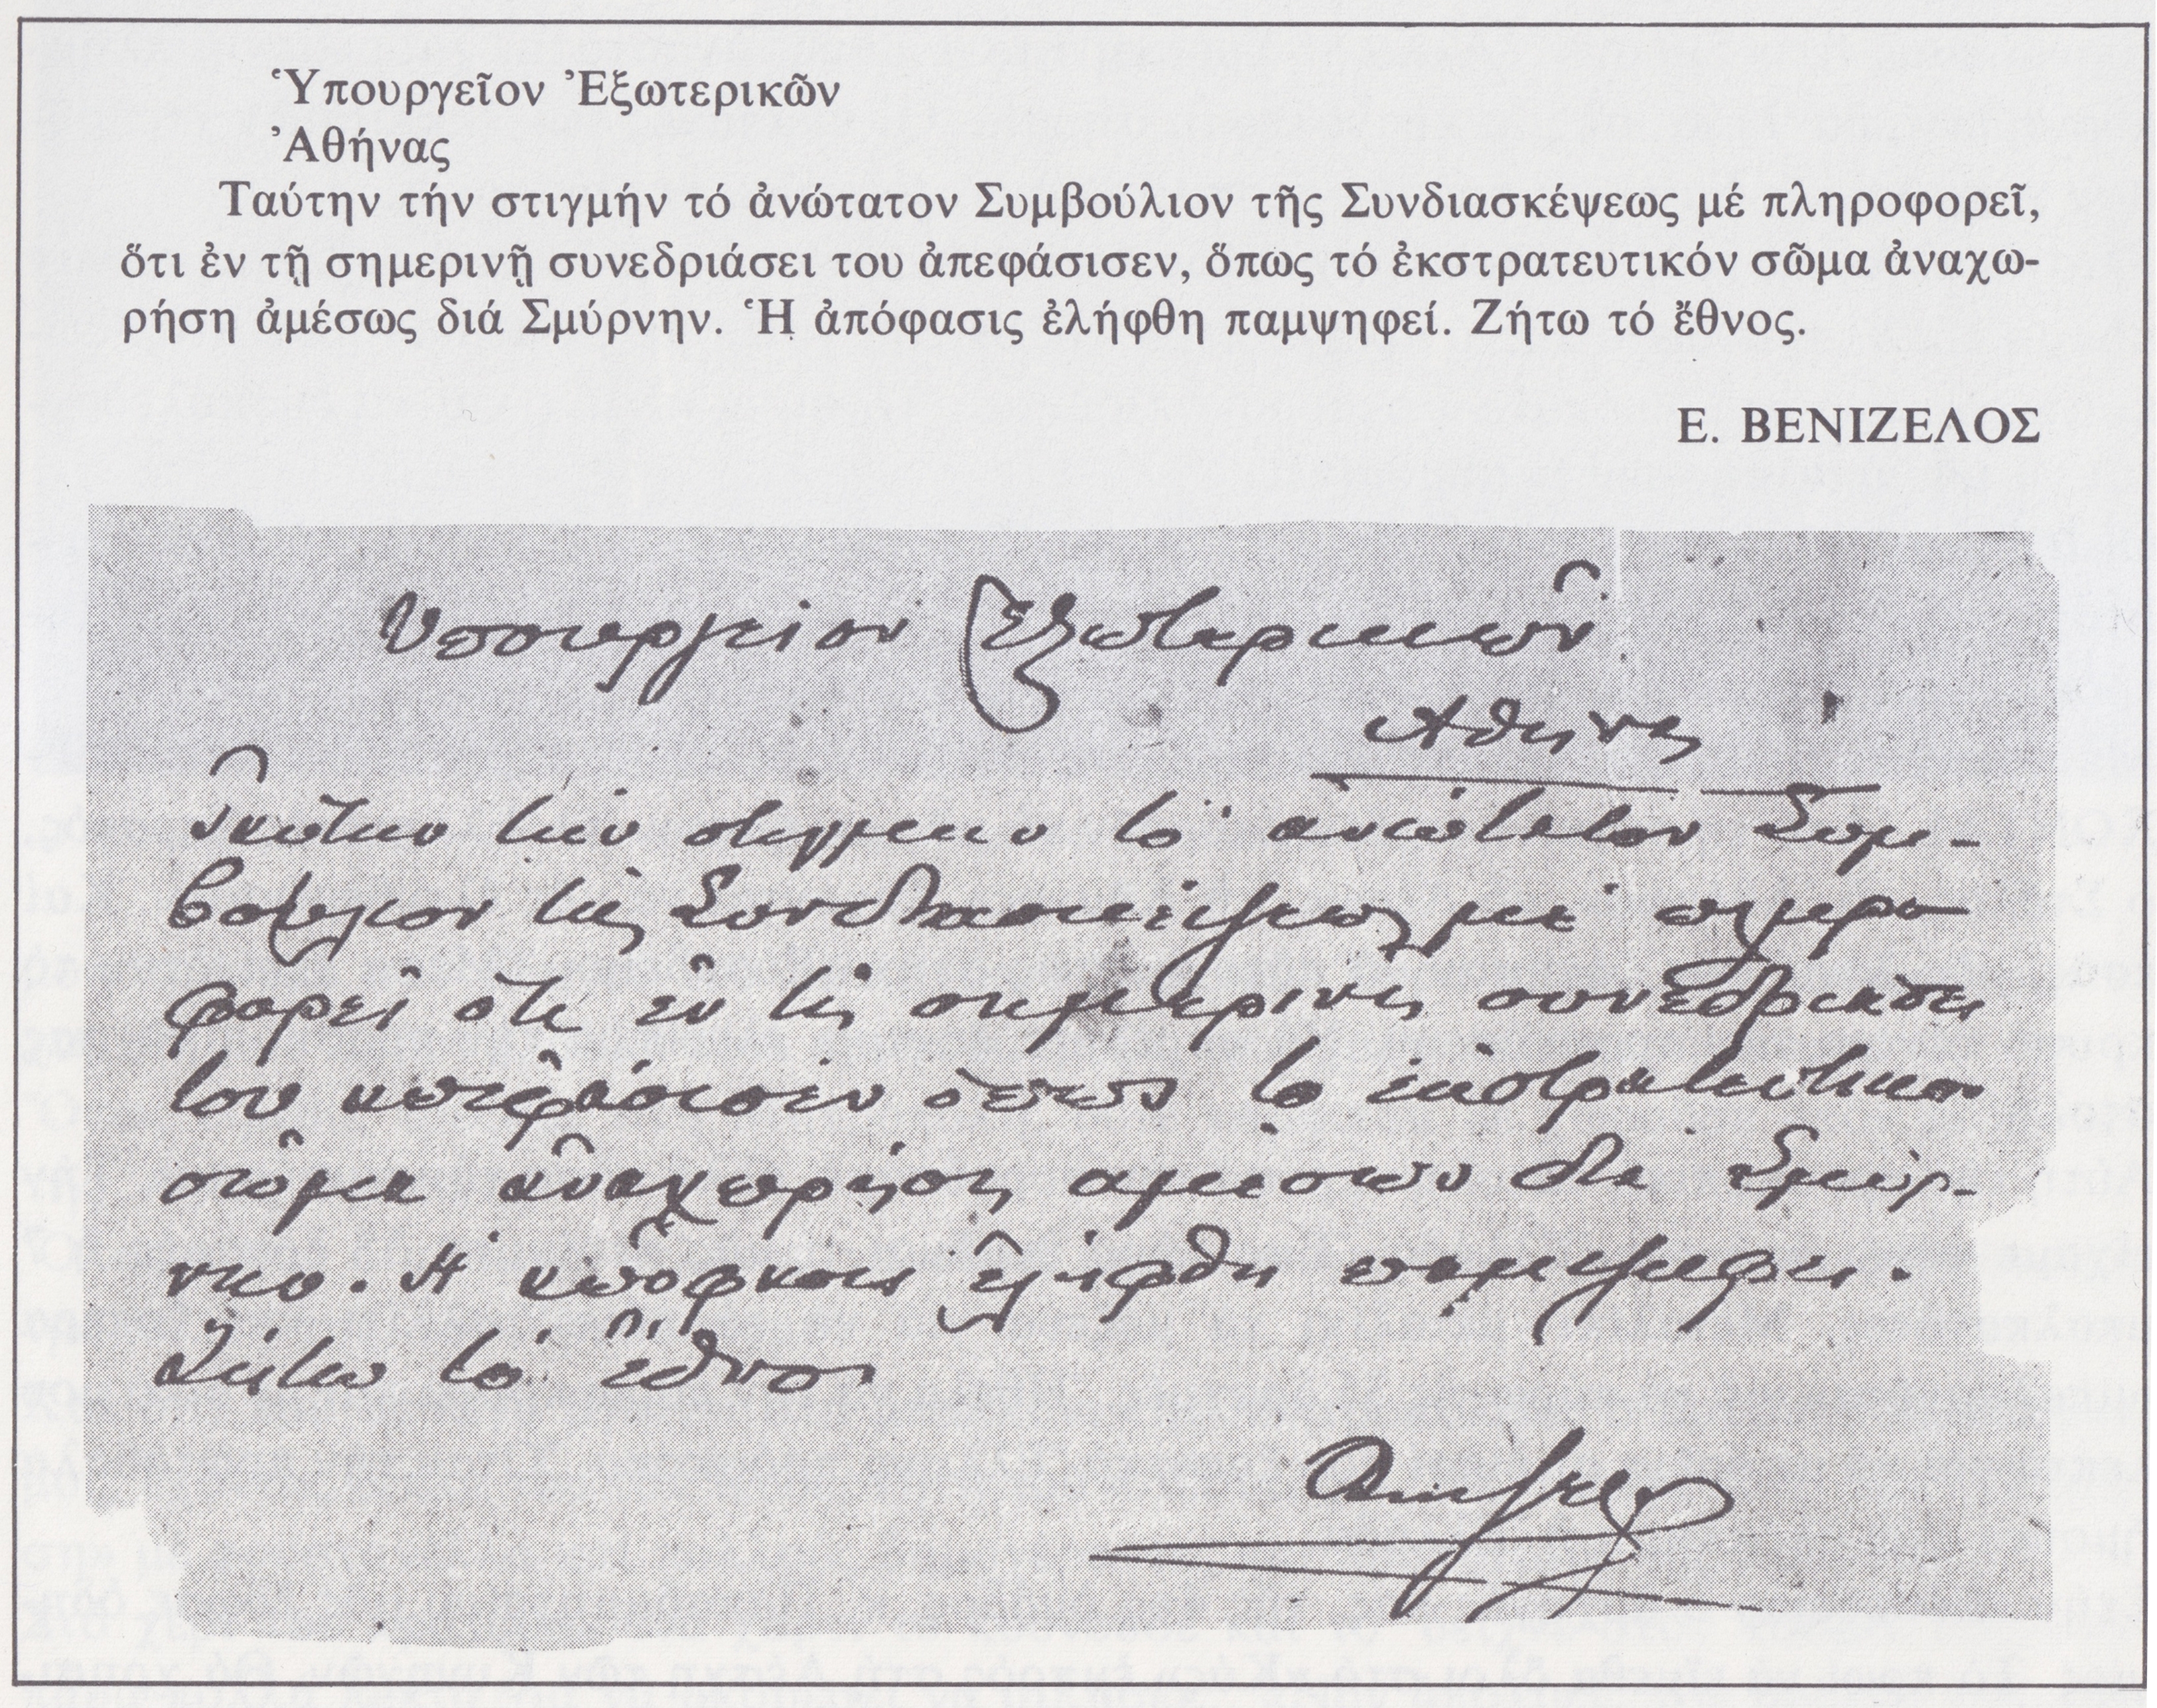 Ὑπουργεῖον Ἐξωτερικῶν
Ἀθήνας
Ταύτην τήν στιγμήν τό ἀνώτατον Συμβούλιον τῆς Συνδιασκέψεως μέ πληροφορεῖ,
ὅτι ἐν τῇ σημερινῇ συνεδριάσει του ἀπεφάσισεν, ὅπως τό ἐκστρατευτικόν σῶμα ἀναχω-
ρήση ἀμέσως διά Σμύρνην. Ἡ ἀπόφασις ἐλήφθη παμψηφεί. Ζήτω τό ἔθνος.
Ε. ΒΕΝΙΖΕΛΟΣ
Υπουργείον Εξωτερικῶν
Αθηνας
Ταύτην την στιγμην το ανώτατον Συμ-
βούλιον της Συνδιασκέψεως μέ πληρο
φορεί ότι εν τη σημερινη συνεδριάσει
του απεφάσισεν όπως το εκστρατευτικον
σώμα αναχωρήση αμέσως δια Σμύρ-
νην. Η απόφασις ελήφθη παμψηφει.
Ζήτω το έθνος